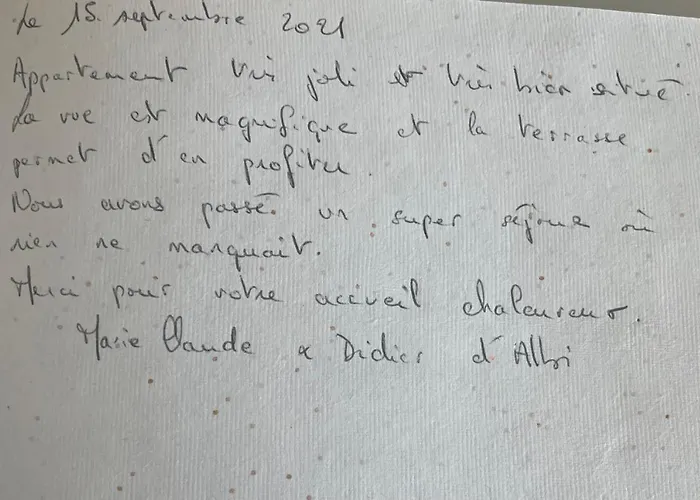 Le 15 septembre 2021
Appartement très joli et très bien situé.
La vue est magnifique et la terrasse
permet d'en profiter.
Nous avons passé un super séjour où
rien ne manquait.
Merci pour votre accueil chaleureux.
Marie Claude & Didier d'Albi